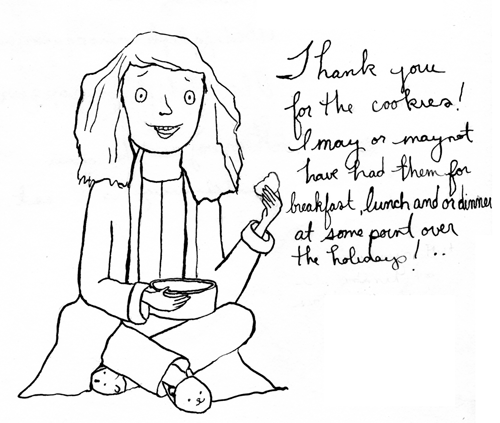 Thank you
for the cookies!
I may or may not
have had them for
breakfast, lunch and or dinner
at some point over
the holidays! ..